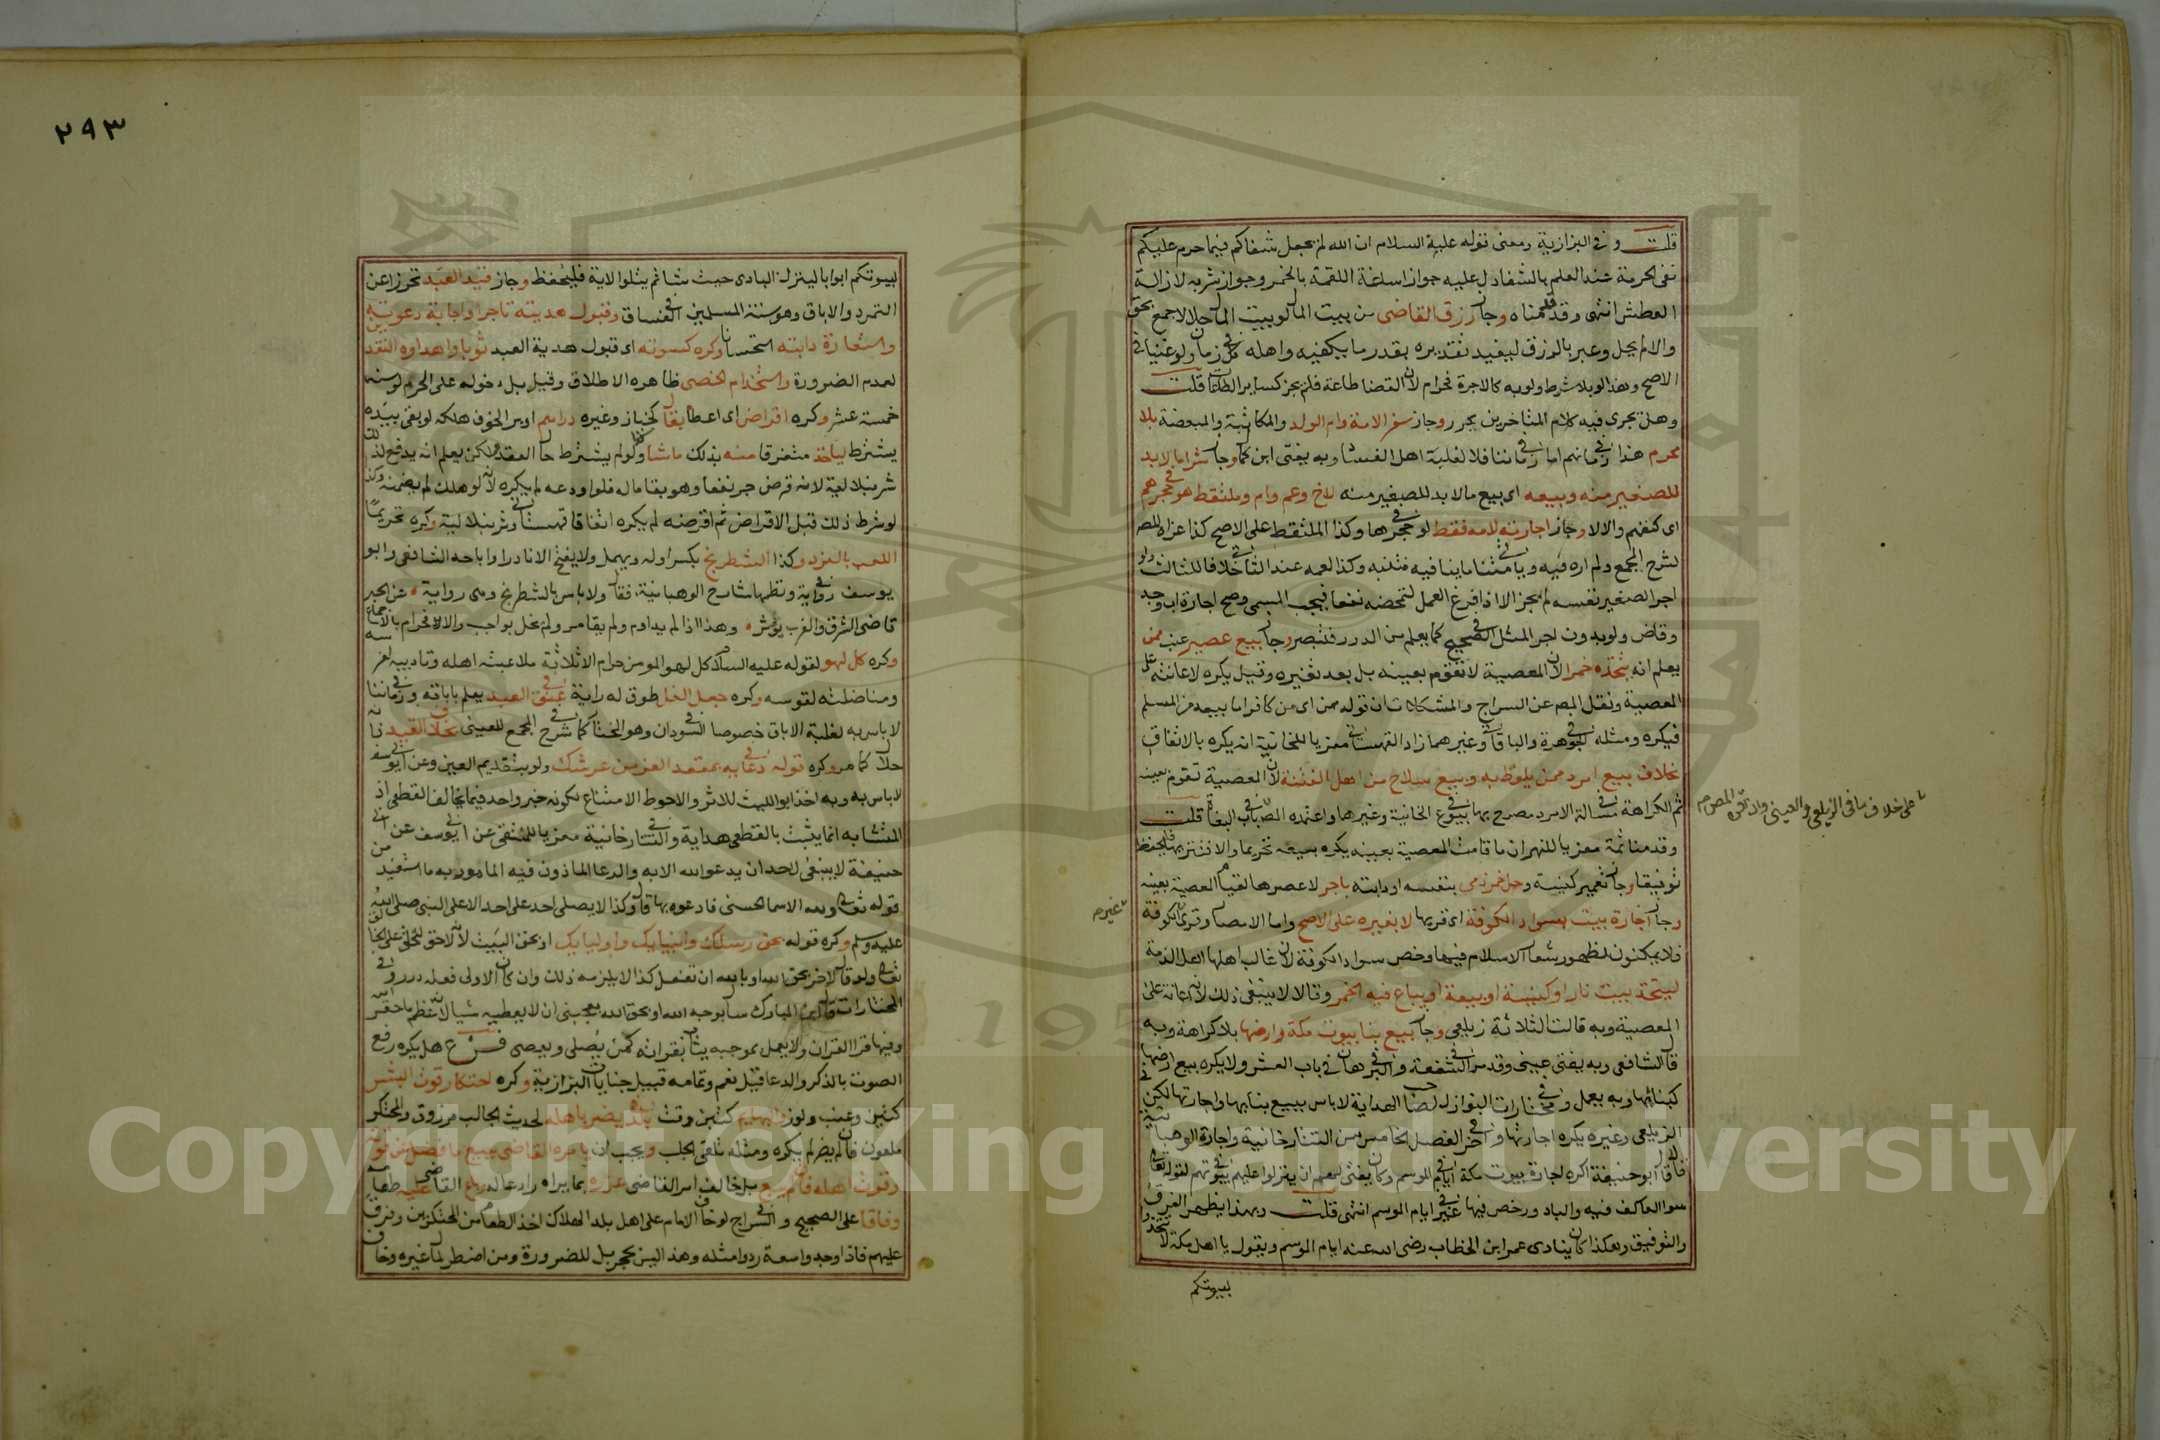 قلت وفي البزازية ومعنى قوله عليه السلام ان الله لم يجعل شفاكم فيما حرم عليكم
نفي الحرمة عند العلم بالشفا دل عليه جواز اساغة اللقمة بالخمر وجواز شربه لازالة
العطش انتهى وقد قدمناه وجاز رزق القاضي من بيت المال لو بيت المال حلالا جمع بحق
والا لم يحل وعبر بالرزق ليفيد تقديره بقدر ما يكفيه واهله في كل زمان ولو غنيا في
الاصح وهذا لو بلا شرط ولو به كالاجرة فحرام لان القضا طاعة فلم يجز كساير الطاعات قلت
وهل يجري فيه كلام المتاخرين يحرر وجاز سفر الامة وام الولد والمكاتبة والمبعضة بلا
محرم هذا في زمانهم اما في زماننا فلا لغلبة اهل الفساد وبه يفتى ابن كمال وجاز شرا ما لا بد
للصغير منه وبيعه اي بيع ما لا بد للصغير منه لاخ وعم وام وملتقط هو في حجرهم
اي كنفهم والا لا وجاز اجارته لامه فقط لو في حجرها وكذا الملتقط على الاصح كذا عزاه المص
لشرح المجمع ولم اره فيه وياتي متنا ما ينافيه فتنبه وكذا لعمه عند الثاني خلافا للثالث ولو
اجر الصغير نفسه لم يجز الا اذا فرغ العمل لتمحضه نفعا فيجب المسمى وصح اجارة اب وجد
وقاض ولو بدون اجر المثل في الصحيح كما يعلم من الدرر فتبصر وجاز بيع عصير عنب ممن
يعلم انه يتخذه خمرا لان المعصية لا تقوم بعينه بل بعد تغيره وقيل يكره لاعانته على
المعصية ونقل المص عن السراج والمشكلات ان قوله ممن اي من كافر اما بيعه من المسلم
فيكره ومثله في الجوهرة والباقاني وغيرهما زاد القهستاني معزيا للخانية انه يكره بالاتفاق
بخلاف بيع امرد ممن يلوط به وبيع سلاح من اهل الفتنة لان المعصية تقوم بعينه
ثم الكراهة في مسالة الامرد مصرح بها في بيوع الخانية وغيرها واعتمده المص في باب البغاة قلت
على خلاف ما في الزيلعي والعيني وان اقره المص م
وقدمنا ثمة معزيا للنهر ان ما قامت المعصية بعينه يكره بيعه تحريما والا فتنزيها فليحفظ
توفيقا وجاز تعمير كنيسة وحمل خمر ذمي بنفسه او دابته باجر لا عصرها لقيام المعصية بعينه
وجاز اجارة بيت بسواد الكوفة اي قريها لا بغيره على الاصح واما الامصار وقرى الكوفة
غيرم
فلا يمكنون لظهور شعار الاسلام فيها وخص سواد الكوفة لان غالب اهلها اهل الذمة
ليتخذ بيت نار او كنيسة او بيعة او يباع فيه الخمر وقالا لا ينبغي ذلك لانه اعانة على
المعصية وبه قالت الثلاثة زيلعي وجاز بيع بنا بيوت مكة وارضها بلا كراهة وبه
قال الشافعي وبه يفتى عيني وقد مر في الشفعة وفي البرهان في باب العشر ولا يكره بيع ارضها
كبنائها وبه يعمل وفي مختارات النوازل لصاحب الهداية لا باس ببيع بنايها واجارتها لكن في
الزيلعي وغيره يكره اجارتها وفي اخر الفصل الخامس من التتارخانية واجارة الوهبانية
قالا قال ابو حنيفة اكره اجارة بيوت مكة في ايام الموسم وكان يفتي لهم ان ينزلوا عليهم في بيوتهم لقوله تعالى
سوا العاكف فيه والباد ورخص فيها في غير ايام الموسم انتهى قلت وبهذا يظهر الفرق
والتوفيق وهكذا كان ينادي عمر ابن الخطاب رضي الله عنه ايام الموسم ويقول يا اهل مكة لا تتخذوا
بيوتكم
٢٩٣
لبيوتكم ابوابا لينزل البادي حيث شا ثم يتلو الاية فليحفظ وجاز قيد العبد تحرزا عن
التمرد والاباق وهو سنة المسلمين في الفساق وقبول هديته تاجرا واجابة دعوته
واستعارة دابته استحسانا وكره كسوته اي قبول هدية العبد ثوبا واهداوه النقدين
لعدم الضرورة واستخدام الخصي ظاهره الاطلاق وقيل بل دخوله على الحرم لو سنه
خمسة عشر وكره اقراض اي اعطا بقال كخباز وغيره دراهم او بر الخوف هلكه لو بقي بيده
يشترط لياخذ متفرقا منه بذلك ما شا ولو لم يشترط حال العقد لكن يعلم انه يدفع لذلك
شرنبلالية لانه قرض جر نفعا وهو بقا ماله فلو اودعه لم يكره لانه لو هلك لم يضمنه وكذا
لو شرط ذلك قبل الاقراض ثم اقرضه لم يكره اتفاقا قهستاني وشرنبلالية وكره تحريما
اللعب بالنرد وكذا الشطرنج بكسر اوله ويهمل ولا يفتح الا نادرا واباحه الشافعي وابو
يوسف في رواية ونظمها شارح الوهبانية فقال ولا باس بالشطرنج وهي رواية عن الحبر
قاضي الشرق والغرب يؤثر وهذا اذا لم يداوم ولم يقامر ولم يخل بواجب والا فحرام بالاجماع
وكره كل لهو لقوله عليه السلام كل لهو المومن حرام الا ثلاثة ملاعبته اهله وتاديبه لفرسه
ومناضلته لقوسه وكره جعل الغل طوق له راية في عنق العبد يعلم باباقه وفي زماننا
لا باس به لغلبة الاباق خصوصا في السودان وهو المختار كما في شرح المجمع للعيني بخلاف القيد فانه
حلال كما مر وكره قوله في دعايه بمقعد العز من عرشك ولو بتقديم العين وعن ابي يوسف
لا باس به وبه اخذ ابو الليث للاثر والاحوط الامتناع لكونه خبر واحد فيما يخالف القطعي اذ
المتشابه انما يثبت بالقطعي هداية وفي التتارخانية معزيا للمنتقى عن ابي يوسف عن ابي
حنيفة لا ينبغي لاحد ان يدعو الله الا به والدعا الماذون فيه المامور به ما استفيد من
قوله تعالى ولله الاسما الحسنى فادعوه بها قال وكذا لا يصلي احد على احد الا على النبي صلى الله
عليه وسلم وكره قوله بحق رسلك وانبيايك واوليايك او بحق البيت لانه لا حق للخلق على الخالق
تعالى ولو قال لاخر بحق الله او بالله ان تفعل كذا لا يلزمه ذلك وان كان الاولى فعله درر وفي
المختارات قال ابن المبارك سال بوجه الله او بحق الله يعجبني ان لا يعطيه شيا لانه عظم ما حقر الله
وفيها قرا القران ولا يعمل بموجبه يثاب بقراته كمن يصلي ويعصي فرع هل يكره رفع
الصوت بالذكر والدعا قيل نعم وتمامه قبيل جنايات البزازية وكره احتكار قوت البشر
كتين وعنب ولوز والبهايم كتبن وقت في بلد يضر باهله لحديث الجالب مرزوق والمحتكر
ملعون فان لم يضر لم يكره ومثله تلقي الجلب ويجب ان يامره القاضي ببيع ما فضل عن قوته
وقوت اهله فان لم يبع بل خالف امر القاضي عزره بما يراه رادعا له وباع القاضي عليه طعامه
وفاقا على الصحيح وفي السراج لو خاف الامام على اهل بلد الهلاك اخذ الطعام من المحتكرين وفرق
عليهم فاذا وجدوا سعة ردوا مثله وهذا ليس بحجر بل للضرورة ومن اضطر لمال غيره وخاف